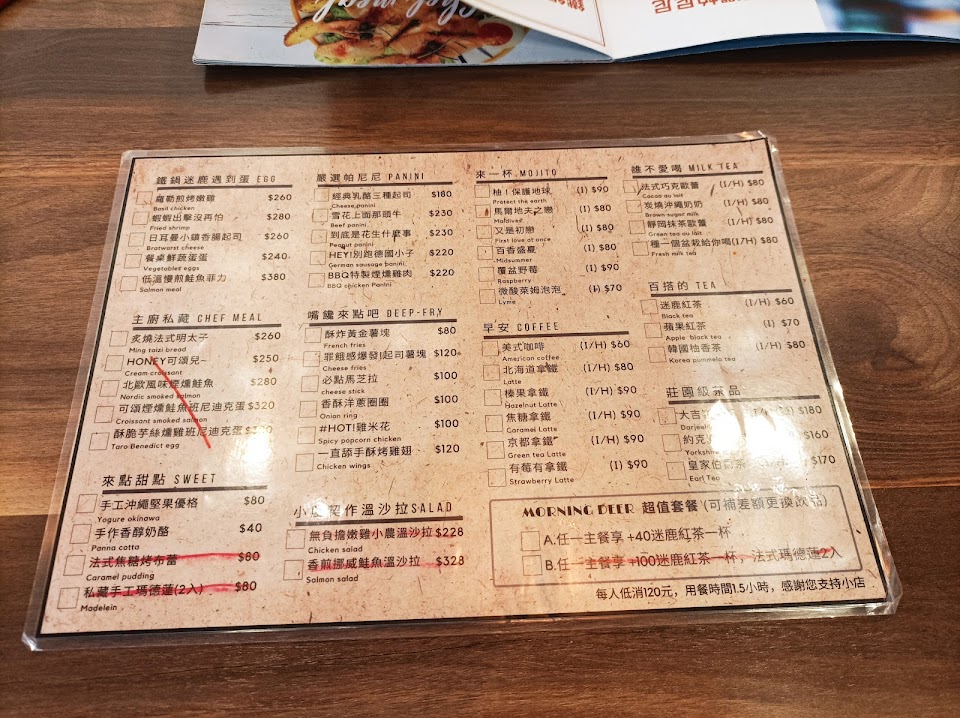 chef meal
鐵鍋迷鹿遇到蛋 EGG
羅勒煎烤嫩雞 $260
Basil chicken
蝦蝦出擊沒再怕 $280
Fried shrimp
日耳曼小鎮香腸起司 $260
Bratwarst cheese
餐桌鮮蔬蛋蛋 $240
Vegetablet eggs
低溫慢煎鮭魚菲力 $380
Salmon meal
主廚私藏 CHEF MEAL
炙燒法式明太子 $260
Ming taizi bread
HONEY可頌兒~ $250
Cream croissant
北歐風味煙燻鮭魚 $280
Nordic smoked salmon
可頌煙燻鮭魚班尼迪克蛋 $320
Croissant smoked salmon
酥脆芋絲燻雞班尼迪克蛋
Taro Benedict egg
來點甜點 SWEET
手工沖繩堅果優格 $80
Yogure okinawa
手作香醇奶酪 $40
Panna cotta
法式焦糖烤布蕾 $80
Caramel pudding
私藏手工瑪德蓮(2入) $80
Madelein
嚴選帕尼尼 PANINI
經典乳酪三種起司 $180
Cheese panini
雪花上面那頭牛 $230
Beef panini
到底是花生什麼事 $230
Peanut panini
HEY!別跑德國小子 $220
German sausage panini
BBQ特製煙燻雞肉 $220
BBQ chicken Panini
嘴饞來點吧 DEEP-FRY
酥炸黃金薯塊 $80
French fries
罪餓感爆發!起司薯塊 $120
Cheese fries
必點馬芝拉 $100
cheese stick
香酥洋蔥圈圈 $100
Onion ring
#HOT!雞米花 $100
Spicy popcorn chicken
一直舔手酥烤雞翅 $120
Chicken wings
作溫沙拉SALAD
無負擔嫩雞小農溫沙拉 $228
Chicken salad
香煎挪威鮭魚溫沙拉 $328
Salmon salad
來一杯 MOJITO
柚!保護地球 (I) $90
Protect the earth
馬爾地夫之戀 (I) $80
Maldives
又是初戀 (I) $80
First love at once
百香盛夏 (I) $80
Midsummer
覆盆野莓 (I) $90
Raspberry
微酸萊姆泡泡 (I) $70
Lyme
早安 COFFEE
美式咖啡 (I/H) $60
American coffee
北海道拿鐵 (I/H) $80
Latte
榛果拿鐵 (I/H) $90
Hazelnut Latte
焦糖拿鐵 (I/H) $90
Caramel Latte
京都拿鐵 (I/H) $90
Green tea Latte
有莓有拿鐵 (I) $90
Strawberry Latte
誰不愛喝 MILK TEA
法式巧克歐蕾 (I/H) $80
Cocoa au lait
炭燒沖繩奶奶 (I/H) $80
Brown sugar milk
靜岡抹茶歐蕾 (I/H) $80
Green tea au lait
種一個盆栽給你喝(I/H) $80
Fresh milk tea
百搭的 TEA
迷鹿紅茶 (I/H) $60
Black tea
蘋果紅茶 (I) $70
Apple black tea
韓國柚香茶 (I/H) $80
Korea pummelo tea
莊園級茶品
大吉 $180
Darjeel
約克 $160
Yorkshire
皇家伯爵茶 $170
Earl Tea
MORNING DEER 超值套餐 (可補差額更換飲品)
A.任一主餐享 +40迷鹿紅茶一杯
B.任一主餐享 +100迷鹿紅茶一杯，法式瑪德蓮2入
每人低消120元，用餐時間1.5小時，感謝您支持小店